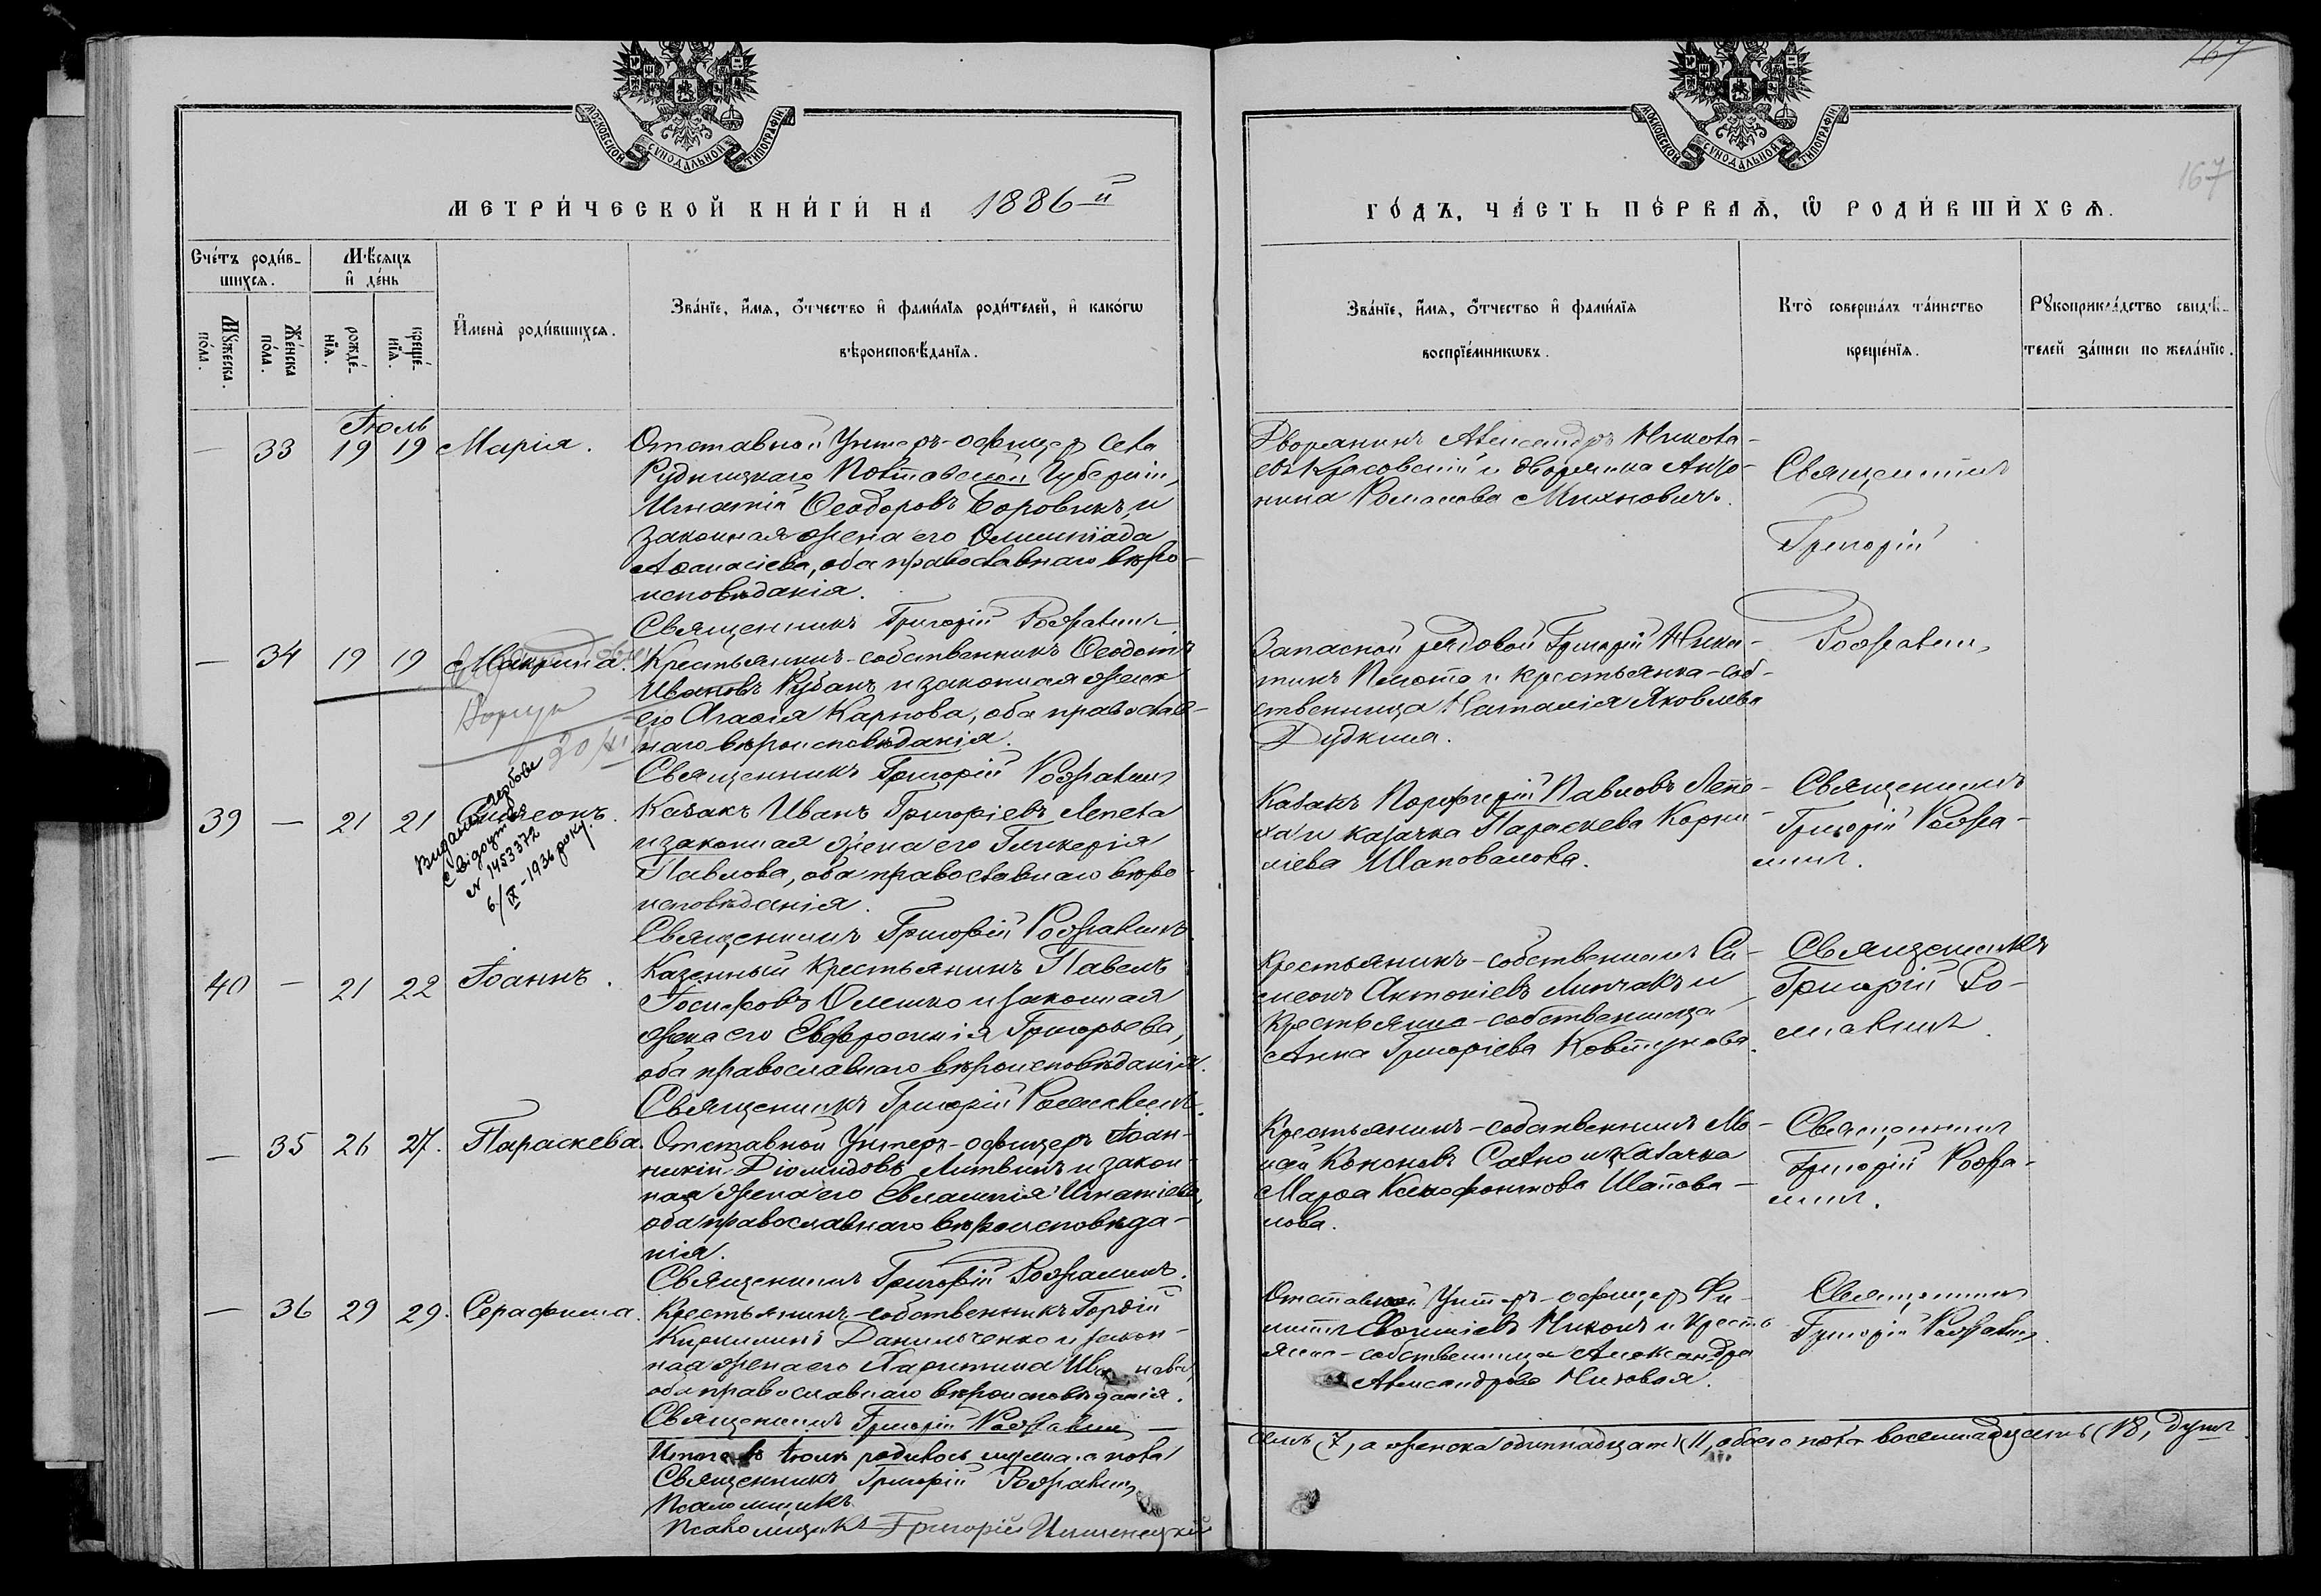 167
МОСКОВСКОЙ СУНОДАЛЬНОЙ ТИПОГРАФІИ
МОСКОВСКОЙ СУНОДАЛЬНОЙ ТИПОГРАФІИ
167
МЕТРИ́ЧЕСКОЙ КНИ́ГИ НА 1886 й
ГО́ДЪ, ЧА́СТЬ ПЕ́РВАѦ, Ѡ РОДИ́ВШИХСѦ.
Сче́тъ роди́в-
шихся.
Мꙋ́жеска по́ла.
Же́нска по́ла.
Мѣ́сяцъ
и҆ де́нь
рожде́-
нїя.
креще́-
нїя.
И҆мена̀ роди́вшихся.
Зва́нїе, и҆́мя, ѻ҆́тчество и҆ фами́лїя роди́телей, и҆ како́гѡ
вѣроисповѣ́данїя.
Зва́нїе, и҆́мя, ѻ҆́тчество и҆ фами́лїя
воспрїе́мникѡвъ.
Кто̀ соверша́лъ та́инство
креще́нїя.
Рꙋкоприкла́дство свидѣ́-
телей за́писи по жела́нїю.
Іюль
— 33 19 19 Марія.
Отставной Унтеръ-офицеръ села
Рудницкаго Полтавской Губерніи,
Игнатій Ѳеодоровъ Боровикъ, и
законная жена его Олимпіада
Аѳанасіева, оба православнаго вѣро-
исповѣданія.
Священникъ Григорій
Дворянинъ Александръ Никола-
евъ Красовскій и дворянка Анто-
нина Романова Михновичъ.
Священникъ
Григорій
— 34 19 19 Макрина.
20/XI
Крестьянинъ-собственникъ Ѳеодотій
Ивановъ Рубанъ и законная жена
его Агаѳія Карпова, оба православ-
наго вѣроисповѣданія.
Священникъ Григорій
Запасной рядовой Григорій Ники-
тинъ и крестьянка-соб-
ственница Наталія Яковлева
Дудкина.
39 — 21 21 Симеонъ.
Видано гербове
свідоцтво
№ 1453372
6/IX-1936 року.
Казакъ Иванъ Григоріевъ Лепеха
и законная жена его Гликерія
Павлова, оба православнаго вѣро-
исповѣданія.
Священникъ Григорій
Казакъ Порфирій Павловъ Лепе-
ха и казачка Параскева Корни-
ліева Шаповалова.
Священникъ
Григорій
40 — 21 22 Іоаннъ.
Казенный крестьянинъ Павелъ
Іосифовъ Олешко и законная
жена его Евфросинія Григорьева,
оба православнаго вѣроисповѣданія.
Священникъ Григорій
Крестьянинъ-собственникъ Си-
меонъ Антоніевъ Линчакъ и
Крестьянка-собственница
Анна Григоріева Ковтунова.
Священникъ
Григорій
— 35 26 27. Параскева.
Отставной Унтеръ-офицеръ Іоан-
никій Діомидовъ Литвинъ и закон-
ная жена его Евлампія Игнатіева,
оба православнаго вѣроисповѣда-
нія.
Священникъ Григорій
Крестьянинъ-собственникъ Мо-
исей Кононовъ Сално и казачка
Марѳа Ксенофонтова Шапова-
лова.
Священникъ
Григорій
— 36 29 29. Серафима.
Крестьянинъ-собственникъ Гордій
Кириллинъ Данильченко и закон-
ная жена его Харитина Иванова,
оба православнаго вѣроисповѣданія.
Священникъ Григорій
Отставной Унтеръ-офицеръ Фи-
липпъ Никонъ и Кресть-
янка-собственница Александра
Александрова
Священникъ
Григорій
Итого въ іюлѣ родилось мужеска пола
семь (7, а женска одиннадцать (11, обоего пола восемнадцать (18, душъ
Священникъ Григорій
Псаломщикъ
Псаломщикъ Григорій